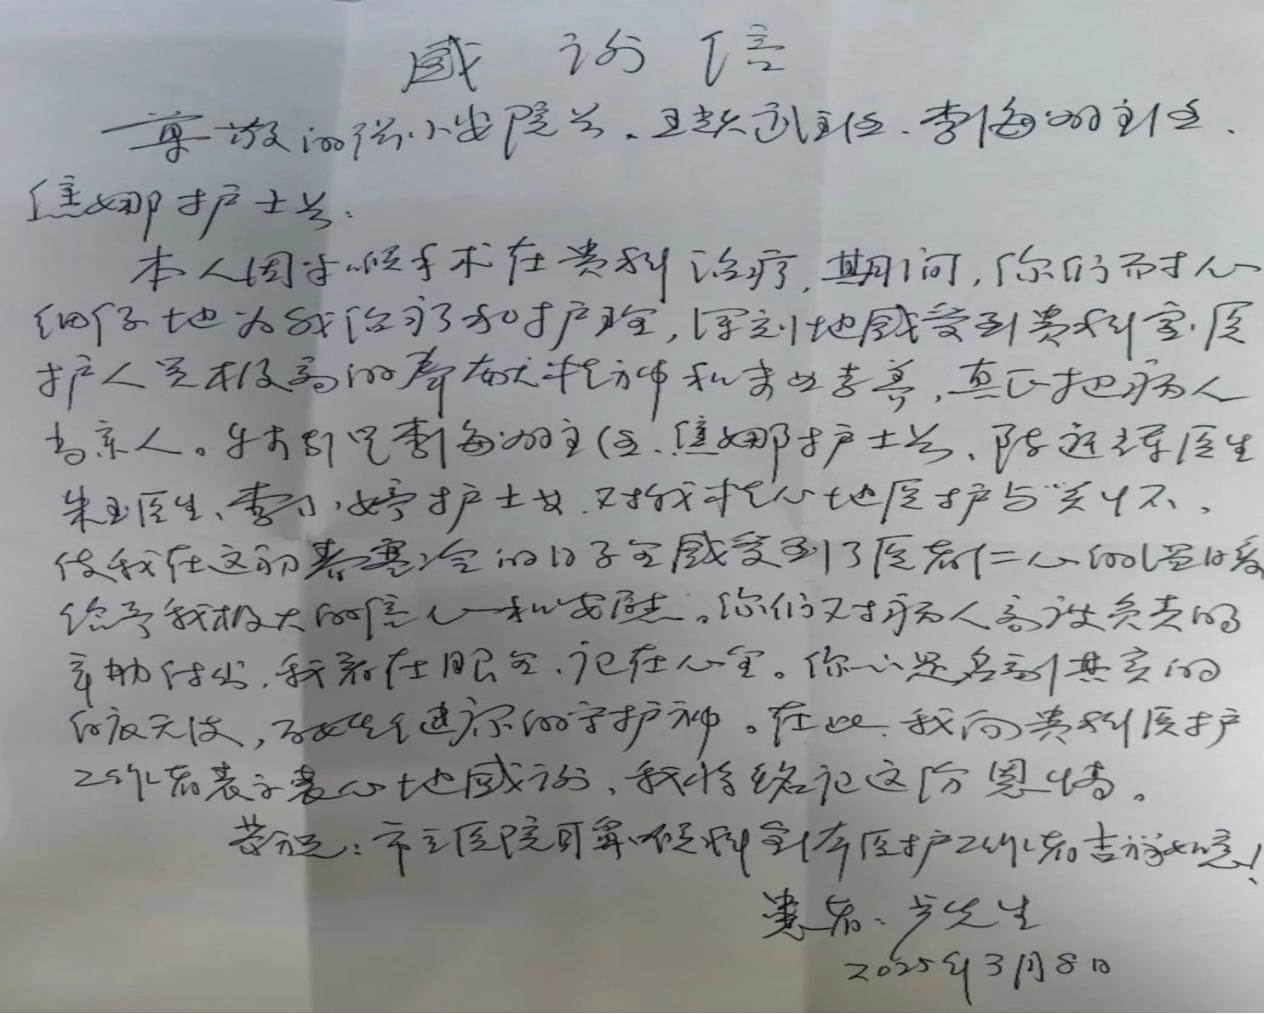 感谢信
尊敬的张小安院长、王赵武主任、李海洲主任、
焦娜护士长：
本人因患喉手术在贵科治疗，期间，你们耐心
细仔地为我治疗和护理，深刻地感受到贵科室医
护人员极高的奉献精神和专业素养，真正把病人
当亲人。特别是李海洲主任、焦娜护士长、陈医生
朱玉医生、李小婷护士女、对我精心地医护与关怀、
使我在这初春寒冷的日子里感受到了医者仁心的温暖
给予我极大的信心和安慰。你们对病人高度负责的
辛勤付出，我看在眼里、记在心里。你们是名副其实的
白衣天使，健康的守护神。在此，我向贵科医护
工作者表示衷心地感谢，我将铭记这份恩情。
恭祝：市立医院耳鼻喉科全体医护工作者吉祥如意！
患者：先生
2025年3月8日